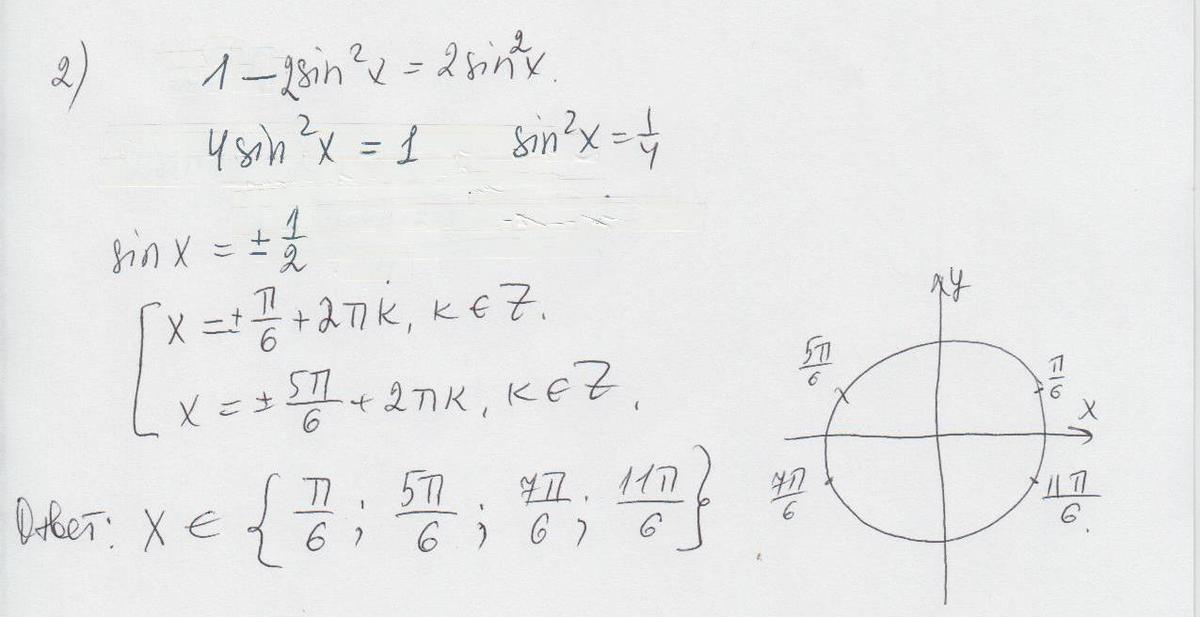 2) 1 − 2sin²x = 2sin²x.
4sin²x = 1 sin²x = 1/4
sin x = ± 1/2
[ x = ± π/6 + 2πk, k ∈ Z.
x = ± 5π/6 + 2πk, k ∈ Z.
Ответ: x ∈ { π/6 ; 5π/6 ; 7π/6 ; 11π/6 }
y
5π/6 π/6
x
7π/6 11π/6.